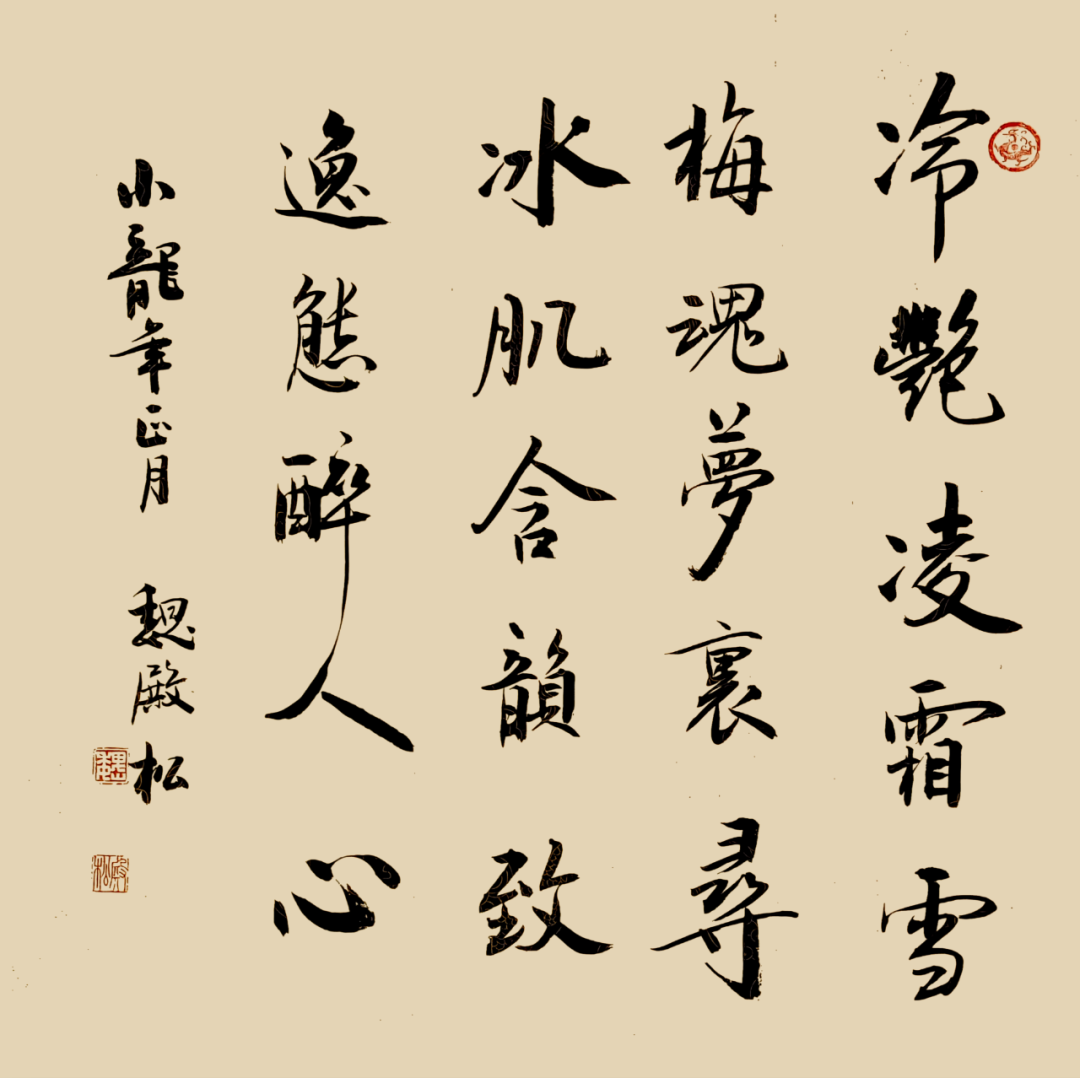 冷艷凌霜雪
梅魂夢裏尋
冰肌含韻致
逸態醉人心
小龍年正月 魏殿松
魏
殿松